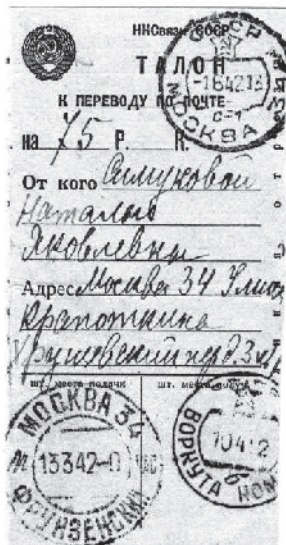 НКСвязи СССР
ТАЛОН
К ПЕРЕВОДУ ПО ПОЧТЕ
на 75 Р. К.
От кого Симуковой
Наталии
Яковлевны
Адрес Москва 34 Улица
Кропоткина
Хрущевский пер д. 3 кв
шт. места подачи шт. места получ
СССР МОСКВА
МОСКВА 34
13 3 42
ФРУНЗЕНСКИЙ
ВОРКУТА КОМИ